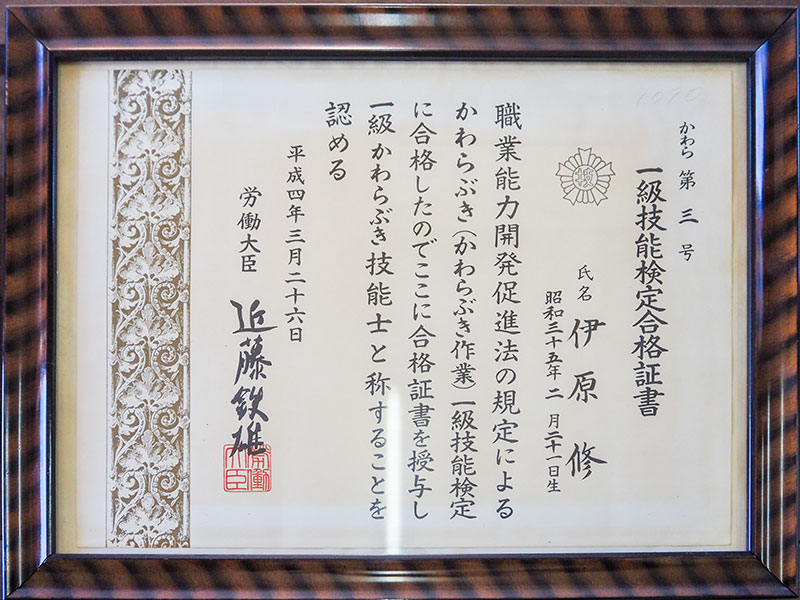 かわら 第 三 号
一級技能検定合格証書
氏名 伊原 修
昭和三十五年 二 月 二十一日生
職業能力開発促進法の規定による
かわらぶき(かわらぶき作業)一級技能検定
に合格したのでここに合格証書を授与し
一級かわらぶき技能士と称することを
認める
平成四年三月二十六日
労働大臣 近藤鉄雄
労働大臣
1090